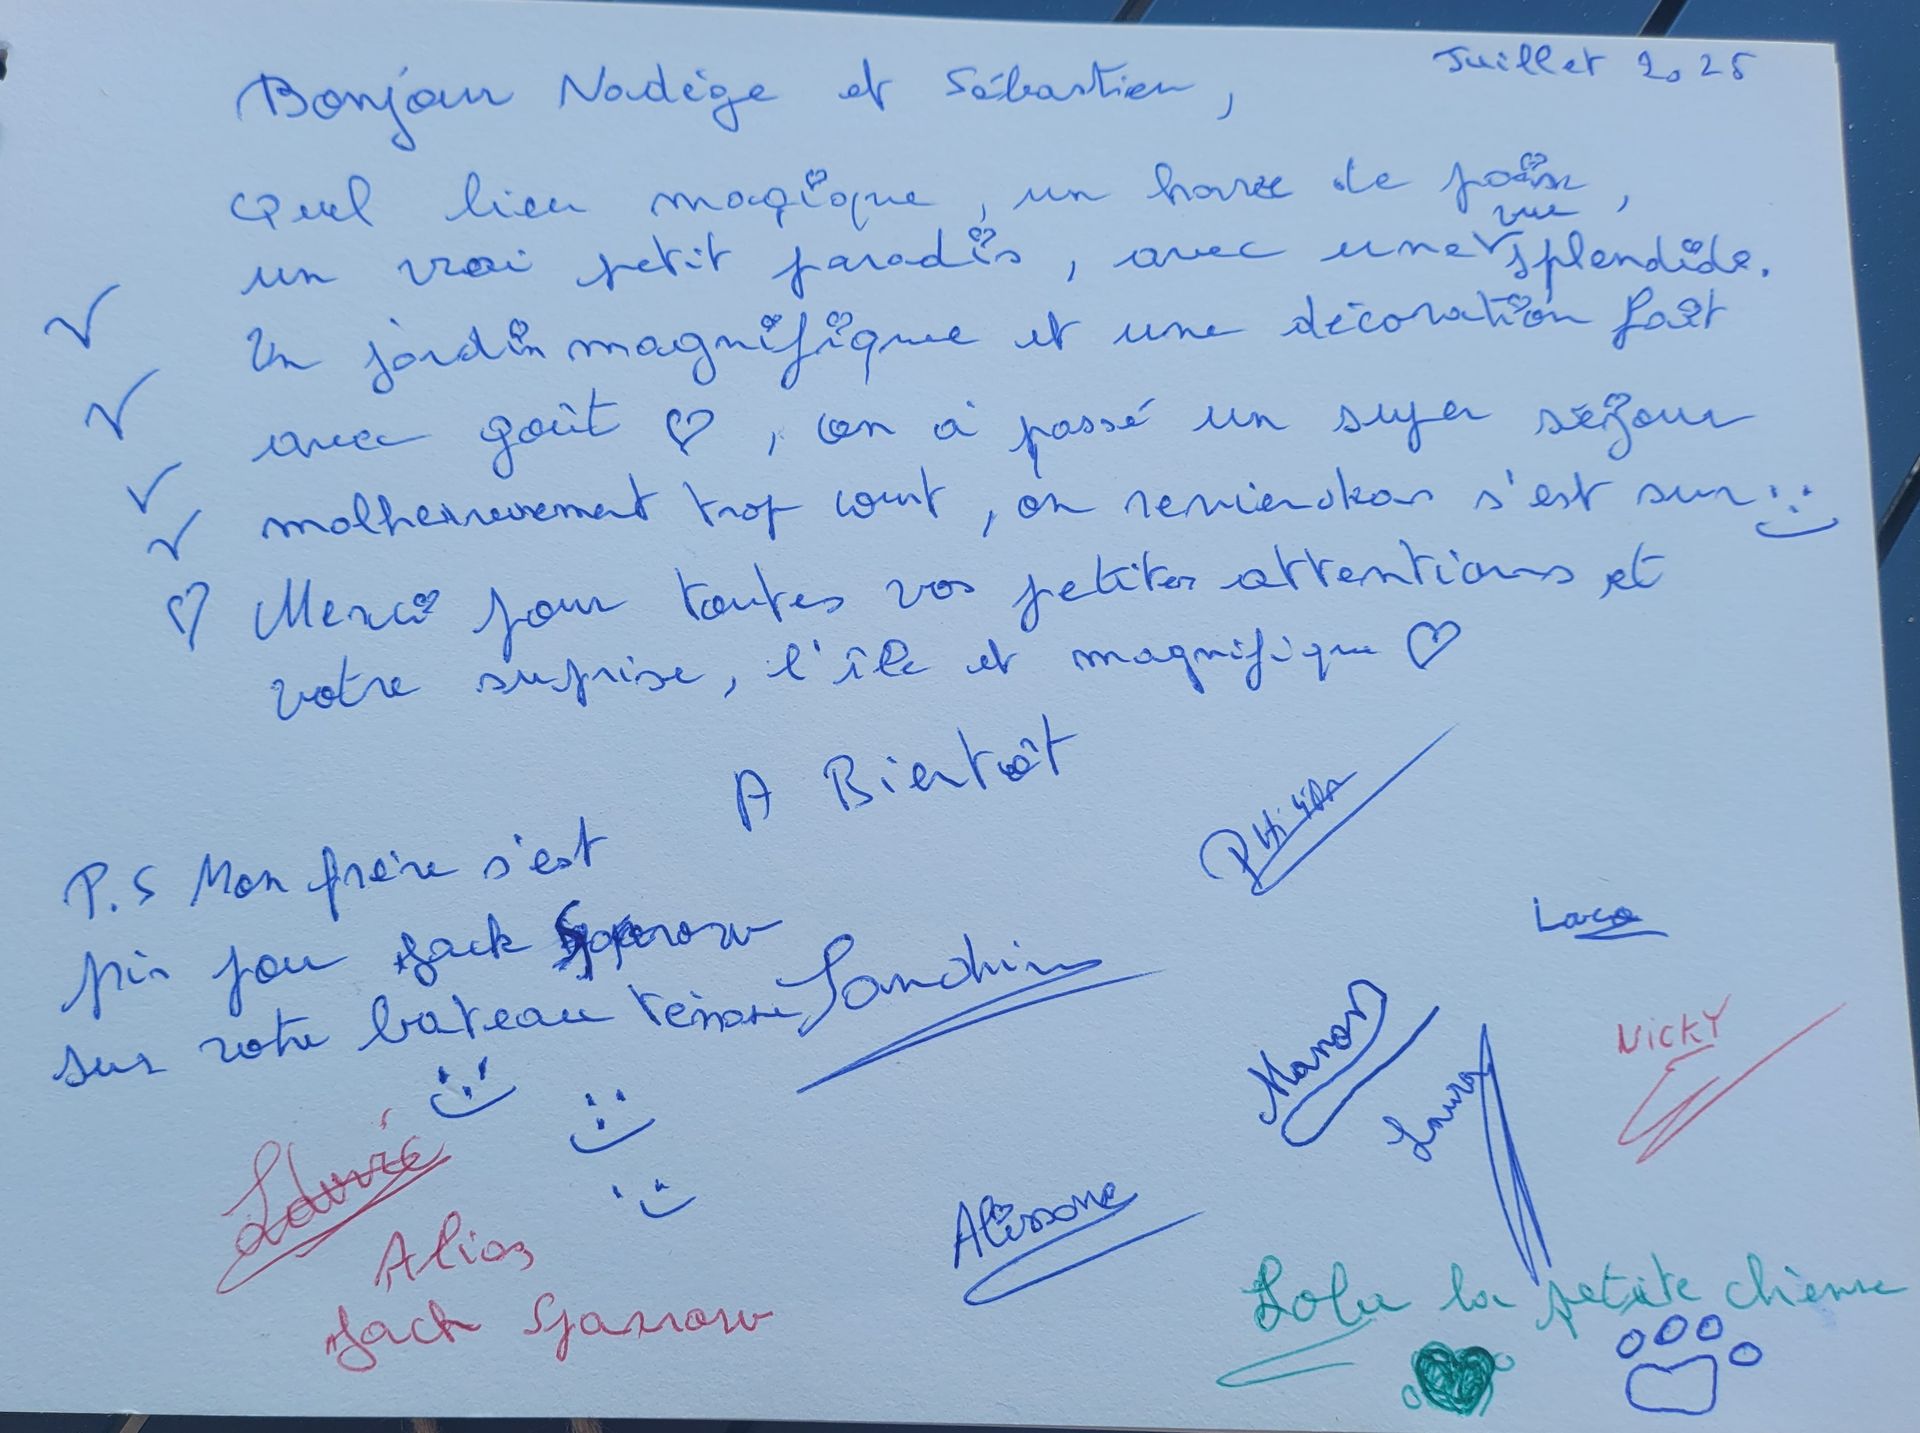 Juillet 2025
Bonjour Nadège et Sébastien,
Quel lieu magique, un havre de paix,
un vrai petit paradis, avec une vue splendide.
Un jardin magnifique et une décoration fait
avec goût ♡, on à passé un super séjour
malheureusement trop court, on reviendras s'est sur :)
♡ Merci pour toutes vos petites attentions et
votre surprise, l'île et magnifique ♡
A Bientôt
P.S Mon frère s'est
pris pour Jack Sparrow
sur votre bateau
Sandrine
Manon
Laura
Nicky
Alissone
Alias
Jack Sparrow
Lola la petite chienne